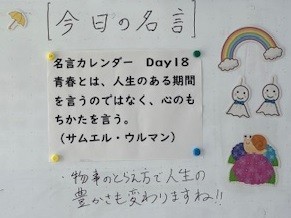 [今日の名言]
名言カレンダー　Day18
青春とは、人生のある期間
を言うのではなく、心のも
ちかたを言う。
（サムエル・ウルマン）
・物事のとらえ方で人生の
豊かさも変わりますね!!